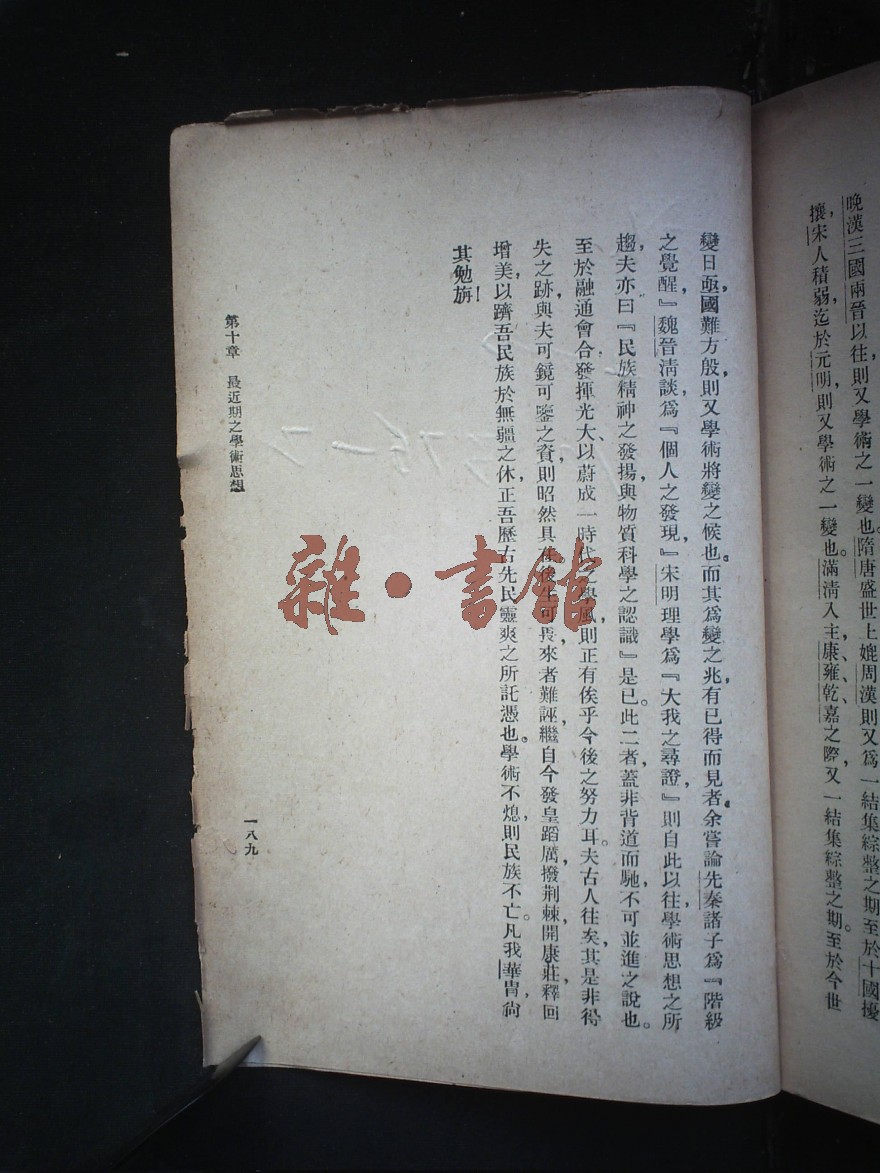 晚漢三國兩晉以往，則又學術之一變也。隋唐盛世上媲周漢則又爲一結集綜整之期至於十國擾
攘，宋人積弱，迄於元明，則又學術之一變也。滿清入主康、雍、乾、嘉之際，又一結集綜整之期。至於今世
變日亟，國難方殷，則又學術將變之候也。而其爲變之兆，有已得而見者。余嘗論先秦諸子爲『階級
之覺醒，』魏晉清談爲『個人之發現，』宋明理學爲『大我之尋證，』則自此以往學術思想之所
趨，夫亦曰『民族精神之發揚，與物質科學之認識』是已。此二者蓋非背道而馳，不可並進之說也。
至於融通會合，發揮光大，以蔚成一時代之學風，則正有俟乎今後之努力耳。夫古人往矣，其是非得
失之跡，與夫可鏡可鑒之資，則昭然具在。後生可畏，來者難誣，繼自今發皇蹈厲，撥荆棘，開康莊，釋回
增美，以躋吾民族於無疆之休，正吾歷古先民靈爽之所託憑也。學術不熄，則民族不亡。凡我華冑，尙
其勉旃！
第十章　最近期之學術思想
一八九
雜·書館